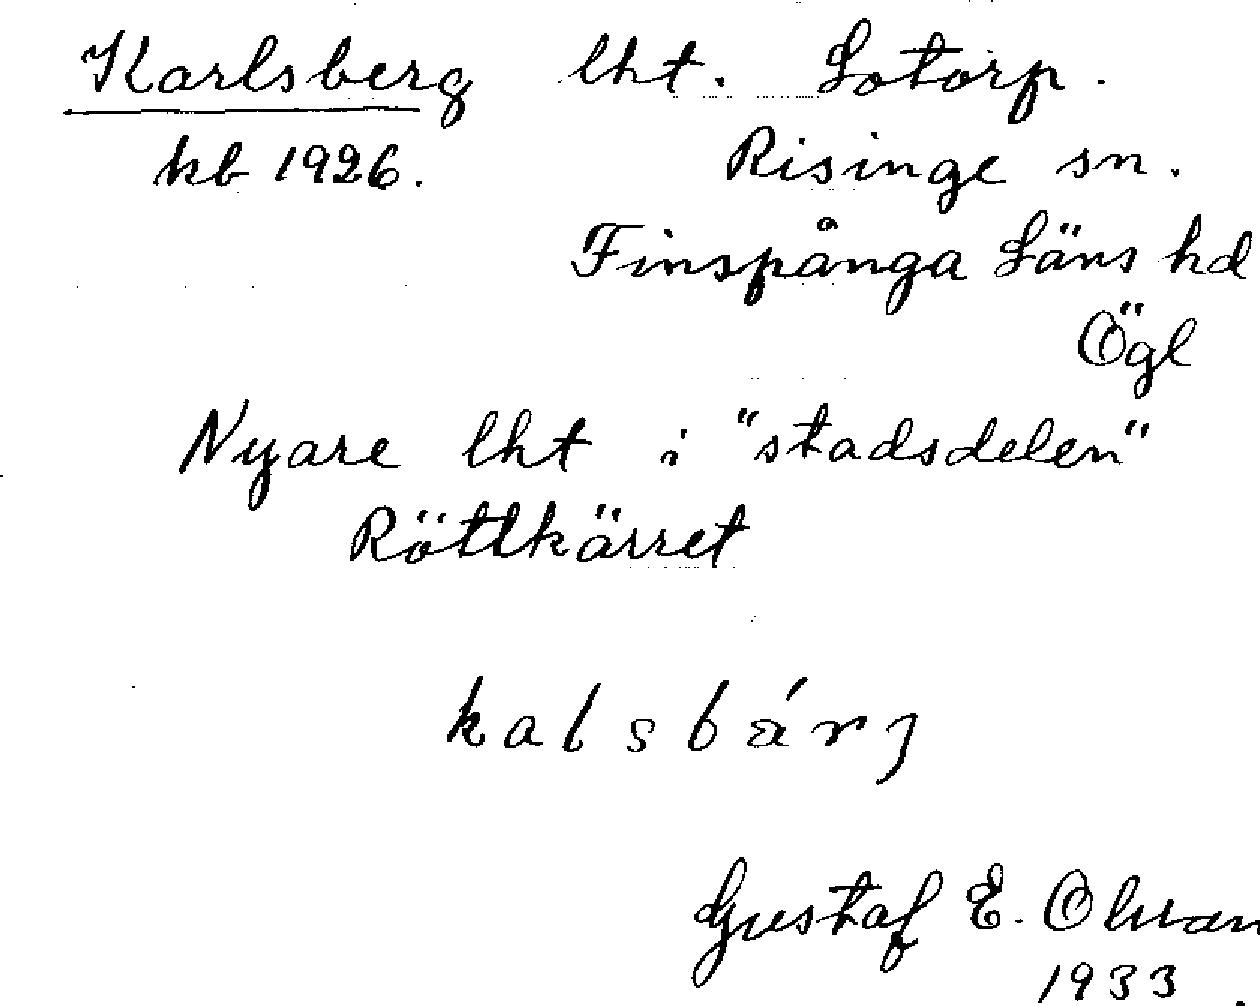 Karlsberg lht. Lotorp.
kb 1926. Risinge sn.
Finspånga Läns hd
Ögl
Nyare lht i "stadsdelen"
Röttkärret
kalsbárj
Gustaf E.
1933